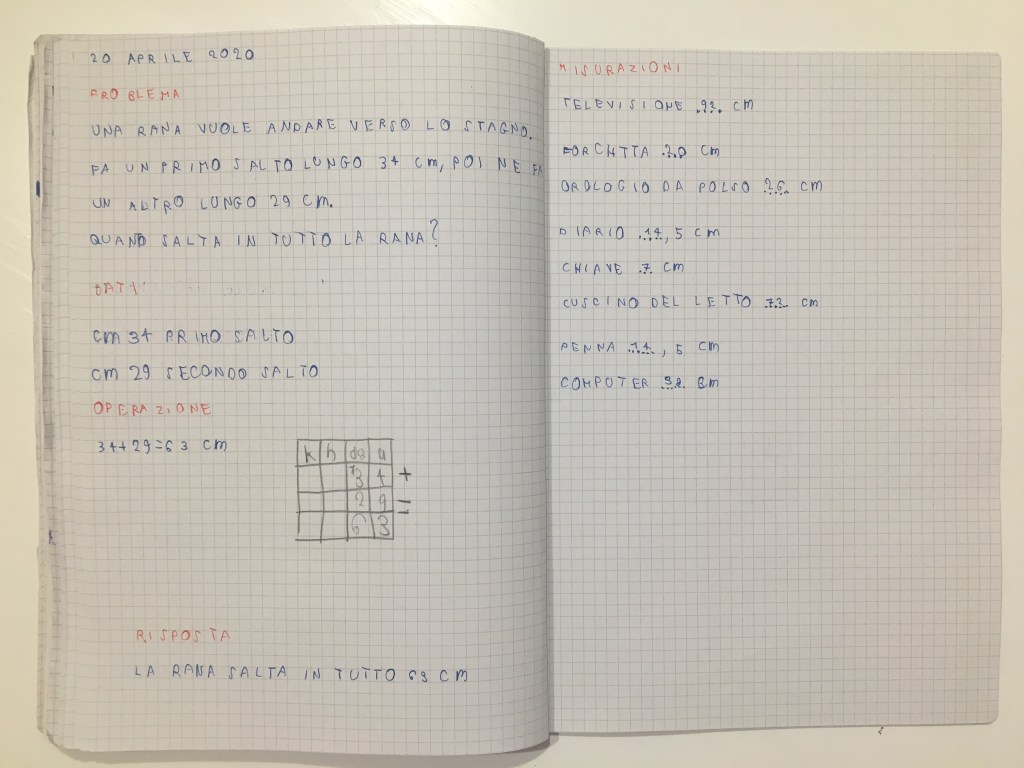 20 APRILE 2020
PROBLEMA
UNA RANA VUOLE ANDARE VERSO LO STAGNO.
FA UN PRIMO SALTO LUNGO 34 CM, POI NE FA
UN ALTRO LUNGO 29 CM.
QUANDO SALTA IN TUTTO LA RANA?
DATI
CM 34 PRIMO SALTO
CM 29 SECONDO SALTO
OPERAZIONE
34+29=63 CM
K h da u
34 +
29 =
63
RISPOSTA
LA RANA SALTA IN TUTTO 63 CM
MISURAZIONI
TELEVISIONE CM
FORCHTTA 20 CM
OROLOGIO DA POLSO 26 CM
DIARIO 14, 5 CM
CHIAVE 7 CM
CUSCINO DEL LETTO CM
PENNA 14, 5 CM
COMPUTER CM